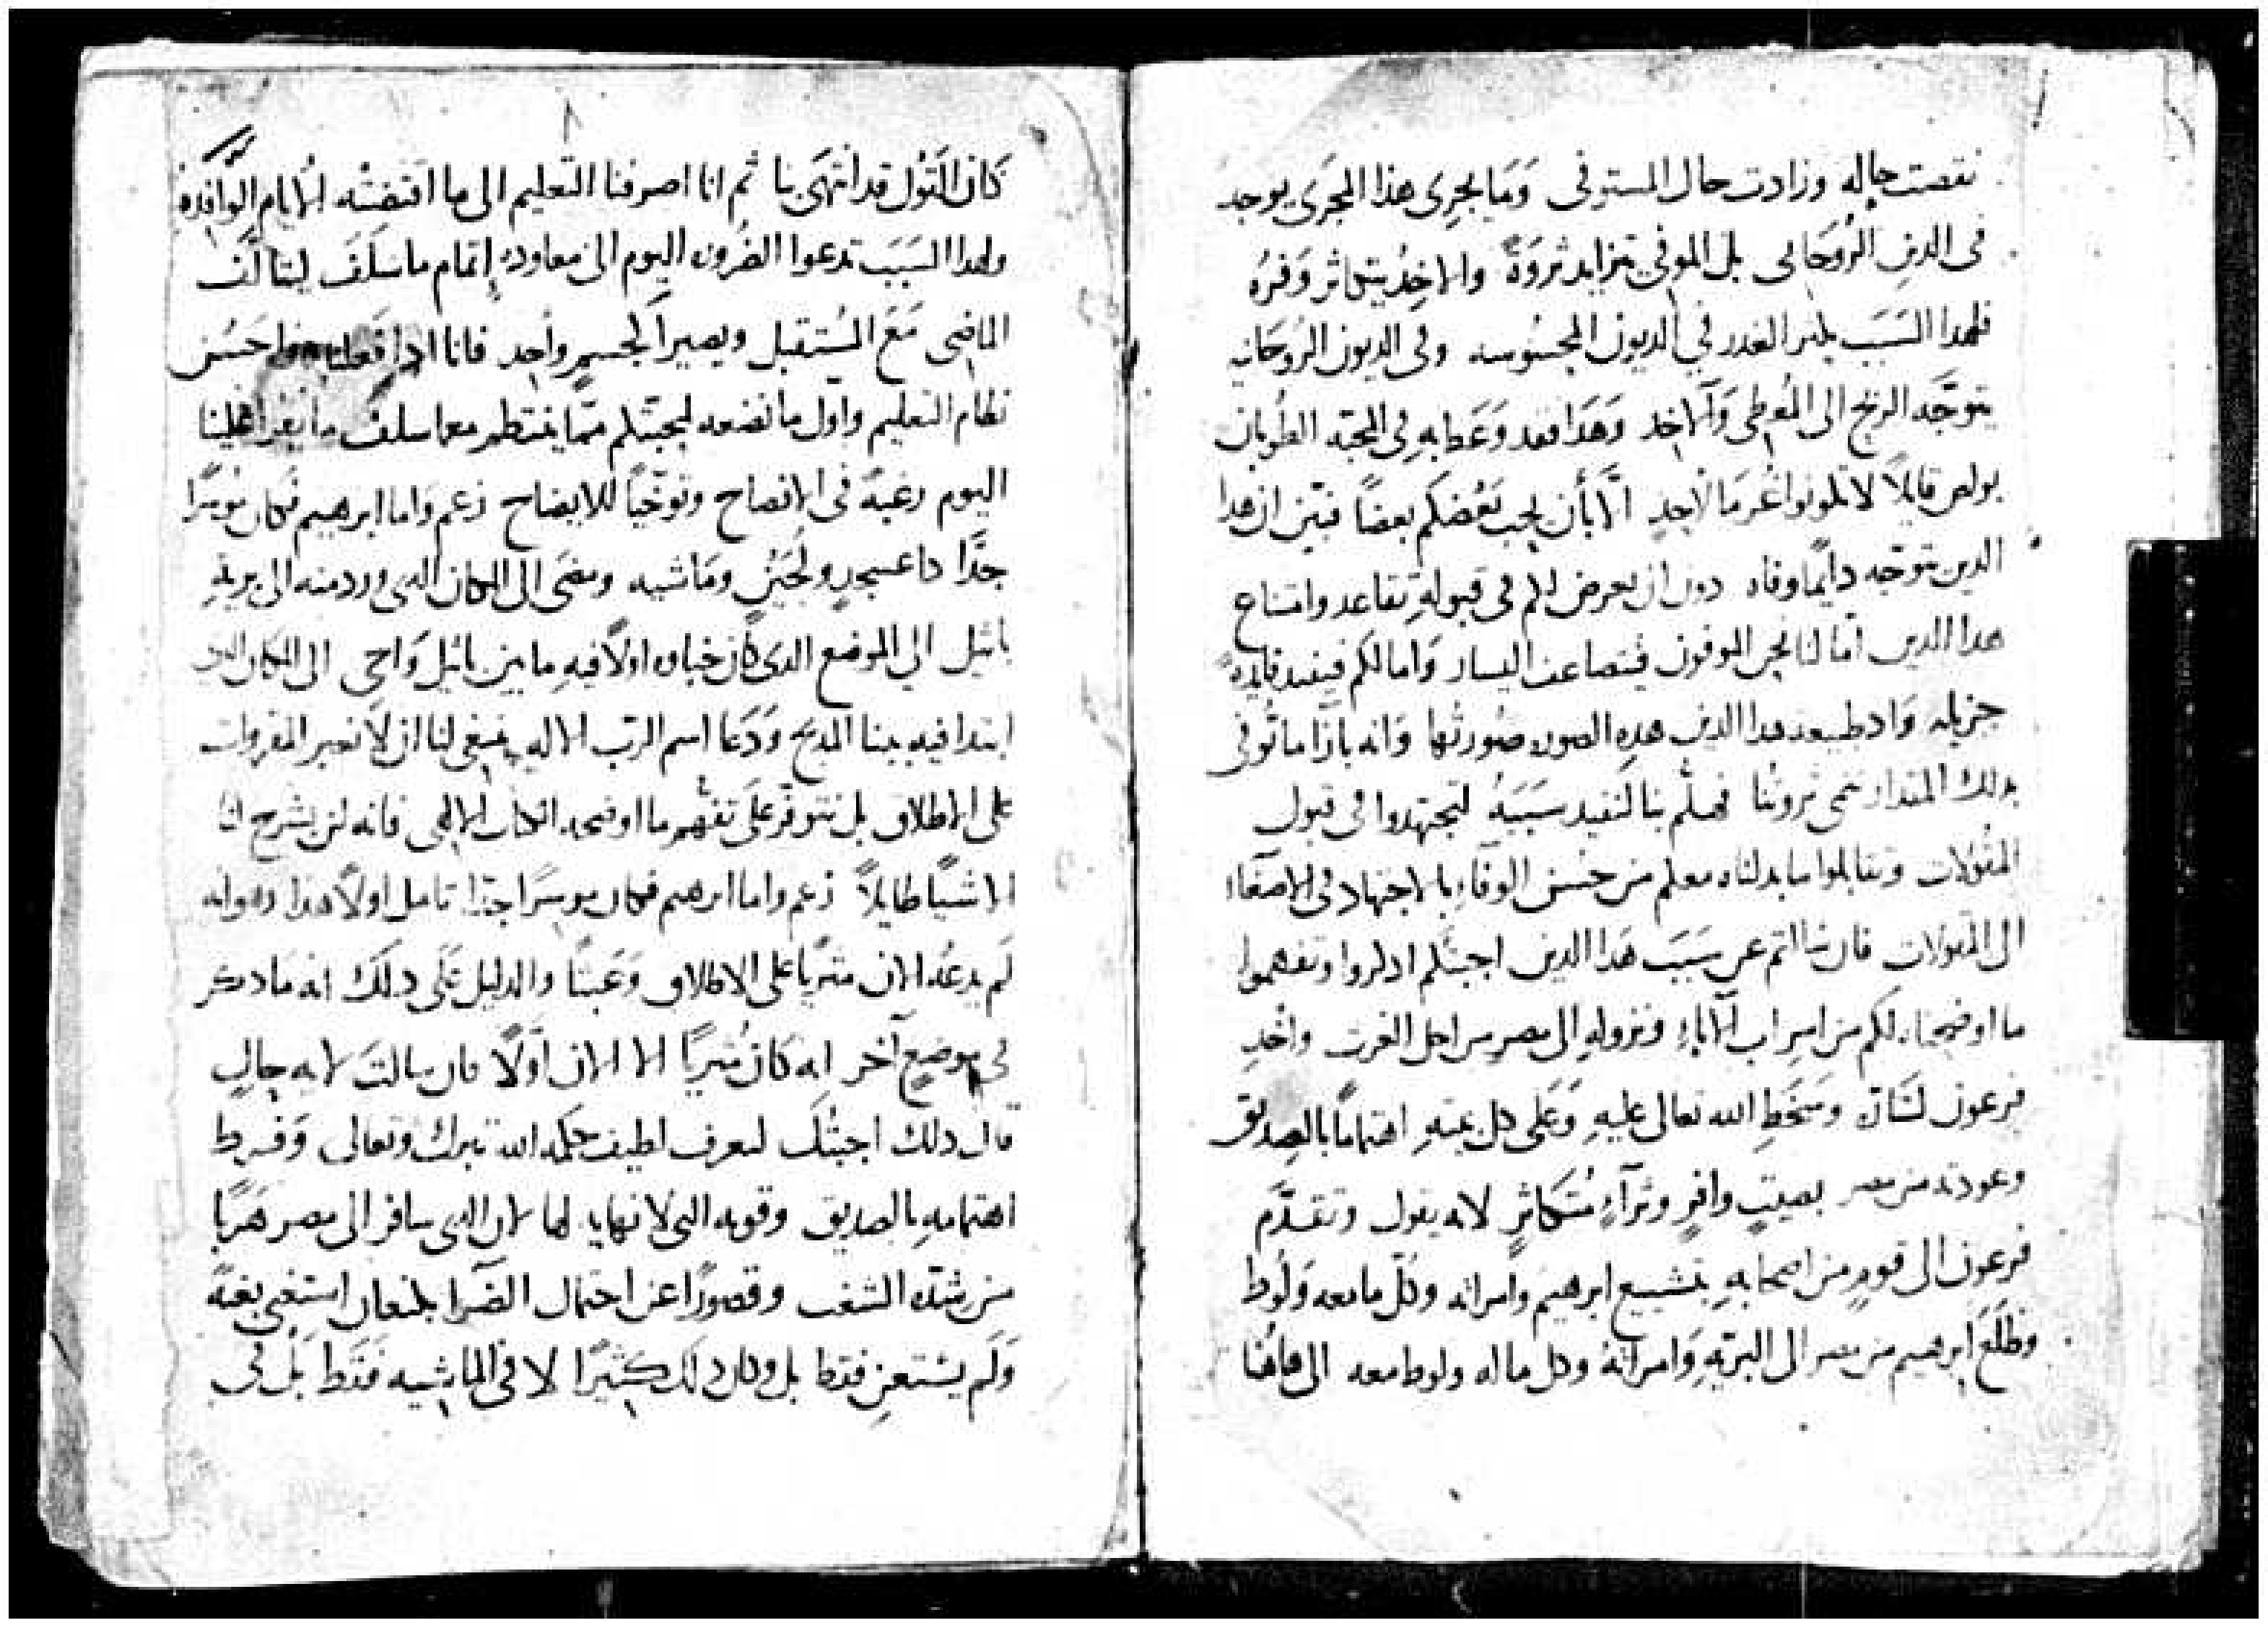 نقصت حاله وزادت حال المستوفى وَمَا يجرِى هذا المجرَى يوجد
فى الدينِ الرُوحَانى بل الموفى تتزايد ثروَةً والاخِذُ يتكاثر وَفرُه
فلهدا السَبَب يكثر الغدر في الديون المحسُوسه وفى الديون الروُحَانيه
يتوجّه الربح الى المُعطى وَالآخد وَهَدَا فقد وَعَظ بهِ فى المحبّه الطُوبان
بولص قايلاً لا تكونوا غُرمَا لأحدٍ الَّا بأن يحب بَعُضكم بعضًا فبيّن ان هدا
الدين تتوجّه دايمًا وفاه دون ان يعرض لكم فى قبولهِ تقاعد وامتناع
هدا الدين امّا لنا نحن الموفون فيتضاعف اليسار وَاما لكم فيفيد فايدهً
جزيله وَاد طبيعه هدا الدين هدهِ الصوره صُورتُها وَانه بازَا ما نُوفى
بدلك المقدار تنمى ثروتُنا فهلُم بنا لنفيد سَبَبهُ لتجتهدوا فى قبول
المقُولات وتقابلوا ما بدلناه معكم من حسن الوفَاءِ بالاجتهاد فى الاصغَاءِ
الى المقولات فان سالتم عن سَبَب هَدا الدين اجبتُكم ادكروا وتفهموا
ما اوضحناه لكم من امرِ اب الآباءِ ونزولهِ الى مصر من اجل الغرث واخدِ
فرعون لسَارّه وسَخَطِ الله تعالى عليهِ وَعَلى كل بيتهِ اهتمامًا بالصِديق
وعودته من مصر بصيتٍ وافرٍ وثرآءٍ مُتكَاثرٍ لانه يقول وتقدَّم
فرعون الى قومٍ من اصحابهِ بتشييع ابرهيم وَامراته وكلّ ما معه وَلُوط
وَطَلَعَ ابرهيم من مصر الى البريّهِ وَامراتهُ وكل ما له ولوط معه الى هاهُنا
كان القَول قد انتَهَى بنا ثم انا اصرفنا التعليم الى ما اقتضتْه الأيام الوَافِدَهُ
ولهدا السَبَب تدعوا الضروره اليوم الى معاودهِ إتمام ما سَلَفَ ليتالَّف
الماضى مَعَ المُستقبل ويصيرَا كجسمٍ واحدٍ فانا ادا فعلنا حسُن
نظام التعليم واوّل ما نضعه لمحبّتكم ممّا ينتظم مع ما سلف ما يُقرا علينا
اليوم رغبهً فى الافصاح وتوخّيًا للايضاح زعم وَاما ابرهيم فكان موسرًا
جدًّا دا عسجدٍ ولُجَيْنٍ ومَاشيه ومضَى الى المكان الدى ورد منه الى بريهِ
بائيل الى الموضع الدى كان خباوه اولًا فيهِ ما بين بائيل وَاحى الى المكان الدى
ابتدا فيه ببنا المدبح وَدَعَا اسم الرَب الاله ينبغى لنا ان لا نعبر المقروات
على الاطلاق بل نتوفّر على تفهُّم ما اوضحه الكتاب الالهى فانه لن يشرح لنا
الا شيًا طايلًا زعم واما ابرهيم فكان موسرًا جدًا تامل اولًا هدا وهوانه
لم يدعُه الان مثريًا على الاطلاق وَعَبثًا والدليل عَلَى دلكَ انه ما دكر
فى موضعٍ آخر انه كانَ مُثريًا الا الان اوّلًا فان سالتَ لايهِ حالٍ
قال دلك اجبتُكَ ليعرف لطيف حِكمه الله تبرك وَتعالى وَفرط
اهتمامهِ بالصديق وقوته التى لا نهايه لها لان الدى سافر الى مصر هَربًا
من شدّه الشغب وقصورًا عن احتمال الضَرا بكنعان استَغنى بغتهً
وَلَم يستغنِ فقط بل وكان دلك كثيرًا لا فى الماشيه فقَط بَل فى